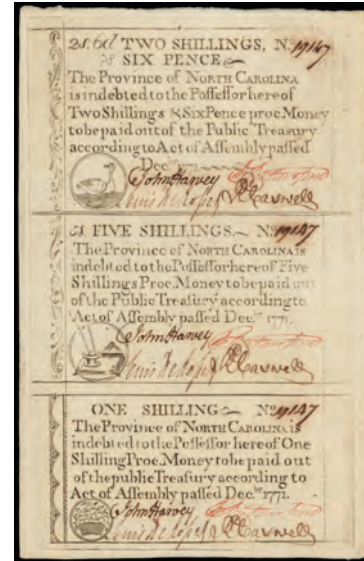 2s. 6d TWO SHILLINGS, No. 19147
SIX PENCE
The Province of NORTH CAROLINA
is indebted to the Possessor hereof
Two Shillings & Six Pence proc. Money
to be paid out of the Public Treasury
according to Act of Assembly passed
Dec.
John Harvey
Lewis De Rosset RCaswell
5s FIVE SHILLINGS No 19147
The Province of NORTH CAROLINA is
indebted to the Possessor hereof Five
Shillings Proc. Money to be paid out
of the Public Treasury according to
Act of Assembly passed Dec.r 1771.
John Harvey
Lewis De Rosset RCaswell
ONE SHILLING No 19147
The Province of NORTH CAROLINA is
indebted to the Possessor hereof One
Shilling Proc. Money to be paid out
of the public Treasury according to
Act of Assembly passed Dec.br 1771.
John Harvey
Lewis De Rosset RCaswell